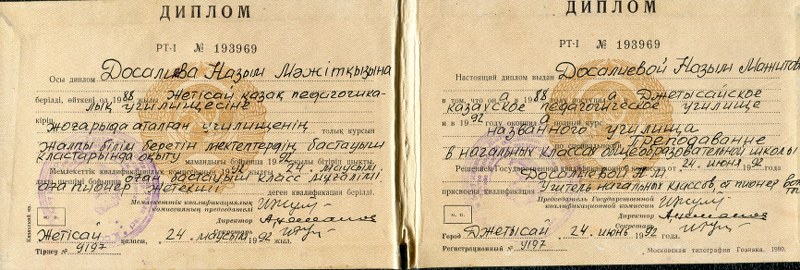 ДИПЛОМ
РТ-I № 193969
Осы диплом Досалиева Назым Мәжітқызына
берілді, өйткені ол 19 88 жылы Жетісай қазақ педагогика-
лық училищесіне
кіріп
жоғарыда аталған училищенің толық курсын
жалпы білім беретін мектептердің бастауыш
кластарында оқыту мамандығы бойынша 19 92 бітіріп шықты.
Мемлекеттік квалификациялық 24 маусым
оған бастауыш класс мұғалімі
аға пионер жетекшісі деген квалификация берілді.
Мемлекеттік квалификациялық
комиссияның председателі
Директор
Секретарь
Жетісай қаласы, 24 маусым 1992 жыл.
Тіркеу № 9197
ДИПЛОМ
РТ-I № 193969
Настоящий диплом выдан Досалиевой Назым Мажитов
в том, что она в 19 88 году поступила в Джетысайское
казахское педагогическое училище
и в 19 92 году окончила полный курс
названного училища
по специальности Преподавание
в начальных классах общеобразовательной школы
Решением Государственной квалификационной 24 июня 92
Досалиевой Н. М.
присвоена квалификация Учитель начальных классов, ст пионер вож
Председатель Государственной
квалификационной комиссии
Директор
Секретарь
М. П.
Город Джетысай, 24 июнь 1992 года.
Регистрационный № 9197
Московская типография Гознака. 1990.